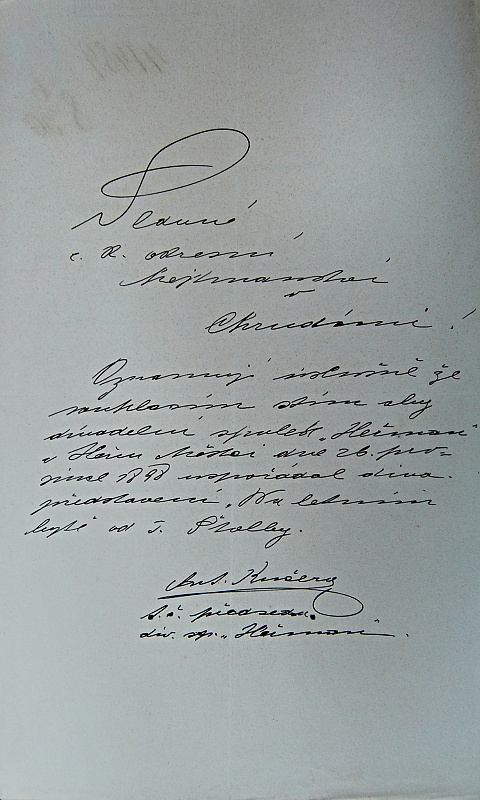 Slavné
c. k. okresní
hejtmanství
v
Chrudimi!
Oznamuji uctivě že
souhlasím s tím aby
divadelní spolek „Heřman“
v Heřm. Městci dne 26. pro-
since 1898 uspořádal diva.
představení „Na letním
bytě od J. Štolby.
Ant. Kučera
t. č. předseda
div. sp. „Heřman“.